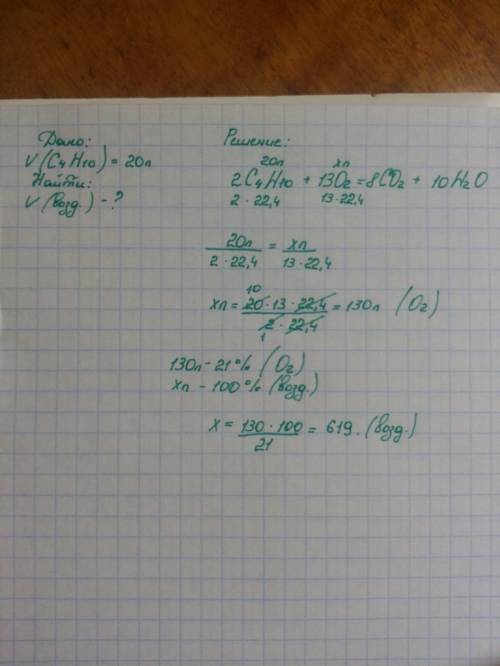 Дано:
V(C4H10) = 20л
Найти:
V(возд.) - ?
Решение:
20л xл
2C4H10 + 13O2 = 8CO2 + 10H2O
2 · 22,4 13 · 22,4
20л / 2 · 22,4 = xл / 13 · 22,4
10
xл = 20 · 13 · 22,4 / 2 · 22,4 = 130л (O2)
1
130л - 21% (O2)
xл - 100% (возд.)
x = 130 · 100 / 21 = 619. (возд.)